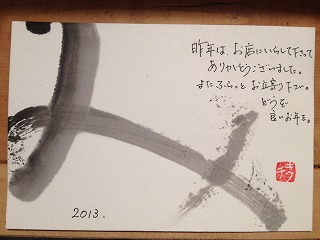 昨年は、お店にいらして下さって
ありがとうございました。
またふらっとお立寄り下さい。
どうぞ
良いお年を。
2013.